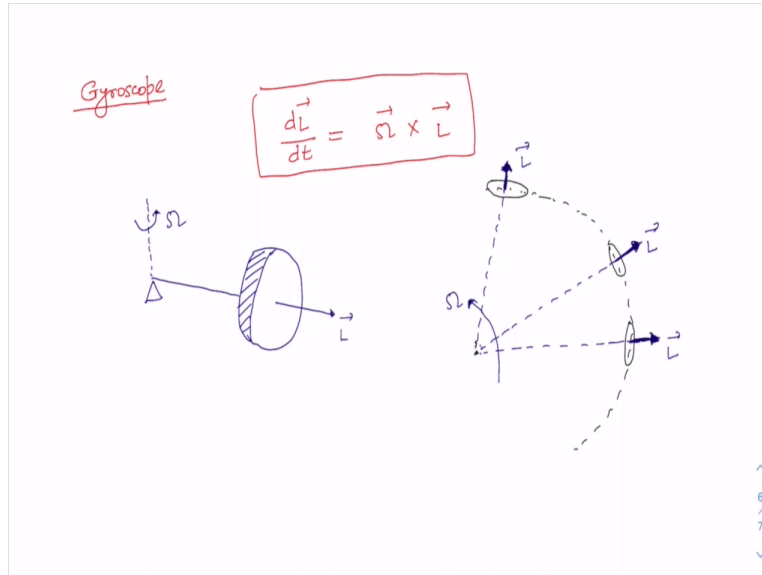 Gyroscope
dL⃗/dt = Ω⃗ × L⃗
Ω
L⃗
L⃗
L⃗
Ω
L⃗
6
7